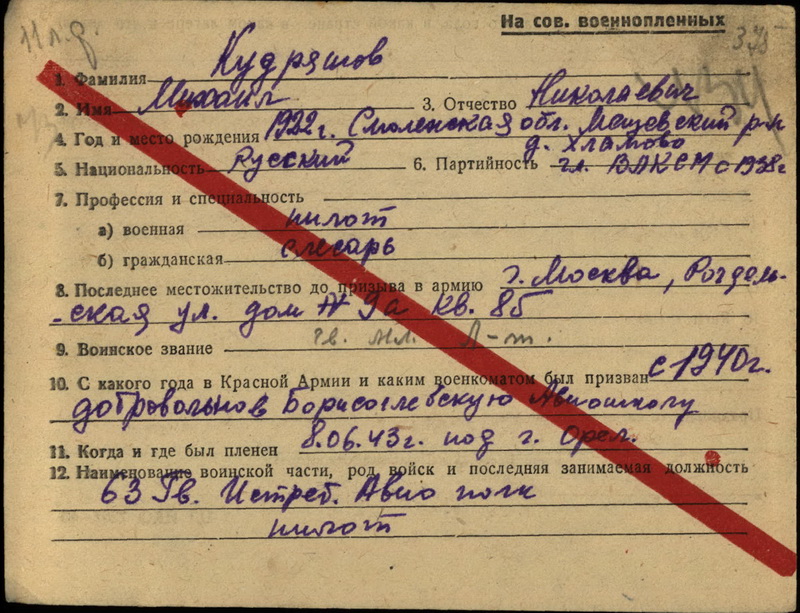 На сов. военнопленных
11 п.д.
1. Фамилия Кудряшов
2. Имя Михаил 3. Отчество Николаевич
4. Год и место рождения 1922 г. Смоленская обл. Мещевский р-н
д. Хламово
5. Национальность Русский 6. Партийность чл. ВЛКСМ с 1938 г
7. Профессия и специальность
а) военная пилот
б) гражданская слесарь
8. Последнее местожительство до призыва в армию г. Москва, Рогдель-
-ская ул. дом № 9а кв. 86
9. Воинское звание гв. мл. Л-т.
10. С какого года в Красной Армии и каким военкоматом был призван с 1940 г.
добровольно в Борисоглебскую Авиошколу
11. Когда и где был пленен 8.06.43 г. под г. Орел.
12. Наименование воинской части, род войск и последняя занимаемая должность
63 Гв. Истреб. Авио полк
пилот